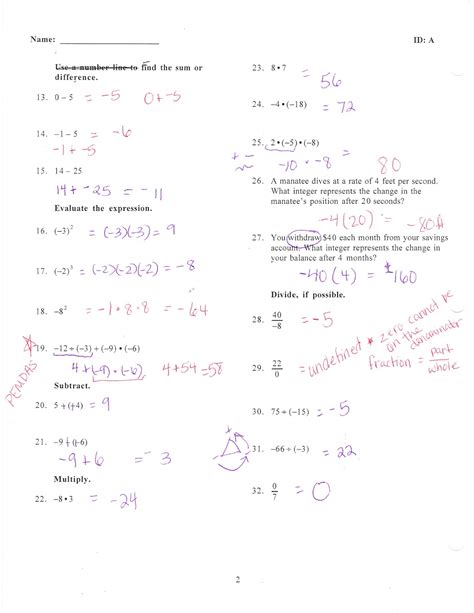 Name: ____________________
ID: A
Use a number line to find the sum or
difference.
13. 0 – 5 = -5 0+-5
14. –1 – 5 = -6
-1 + -5
15. 14 – 25
14 + -25 = -11
Evaluate the expression.
16. (–3)² = (-3)(-3) = 9
17. (–2)³ = (-2)(-2)(-2) = -8
18. –8² = -1·8·8 = -64
PEMDAS
19. –12 ÷ (–3) + (–9) • (–6)
4 + (-9)·(-6) 4+54=58
Subtract.
20. 5 + (+4) = 9
21. –9 + (–6)
-9+6 = -3
Multiply.
22. –8 • 3 = -24
23. 8 • 7 = 56
24. –4 • (–18) = 72
25. 2 • (–5) • (–8)
+ -
-10 · -8 = 80
26. A manatee dives at a rate of 4 feet per second.
What integer represents the change in the
manatee's position after 20 seconds?
-4(20) = -80ft
27. You withdraw $40 each month from your savings
account. What integer represents the change in
your balance after 4 months?
-40(4) = 160
Divide, if possible.
28. 40/–8 = -5
29. 22/0 = undefined * zero cannot be
on the
denominator
fraction = part/whole
30. 75 ÷ (–15) = -5
31. –66 ÷ (–3) = 22
32. 0/7 = 0
2